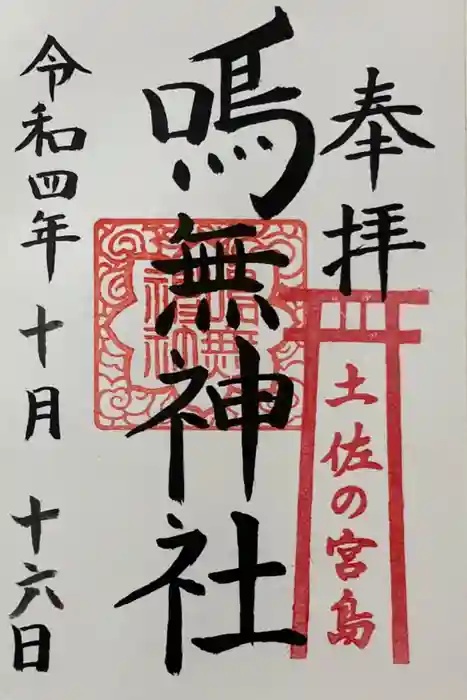 奉拝
土佐の宮島
鳴無神社
令和四年十月十六日